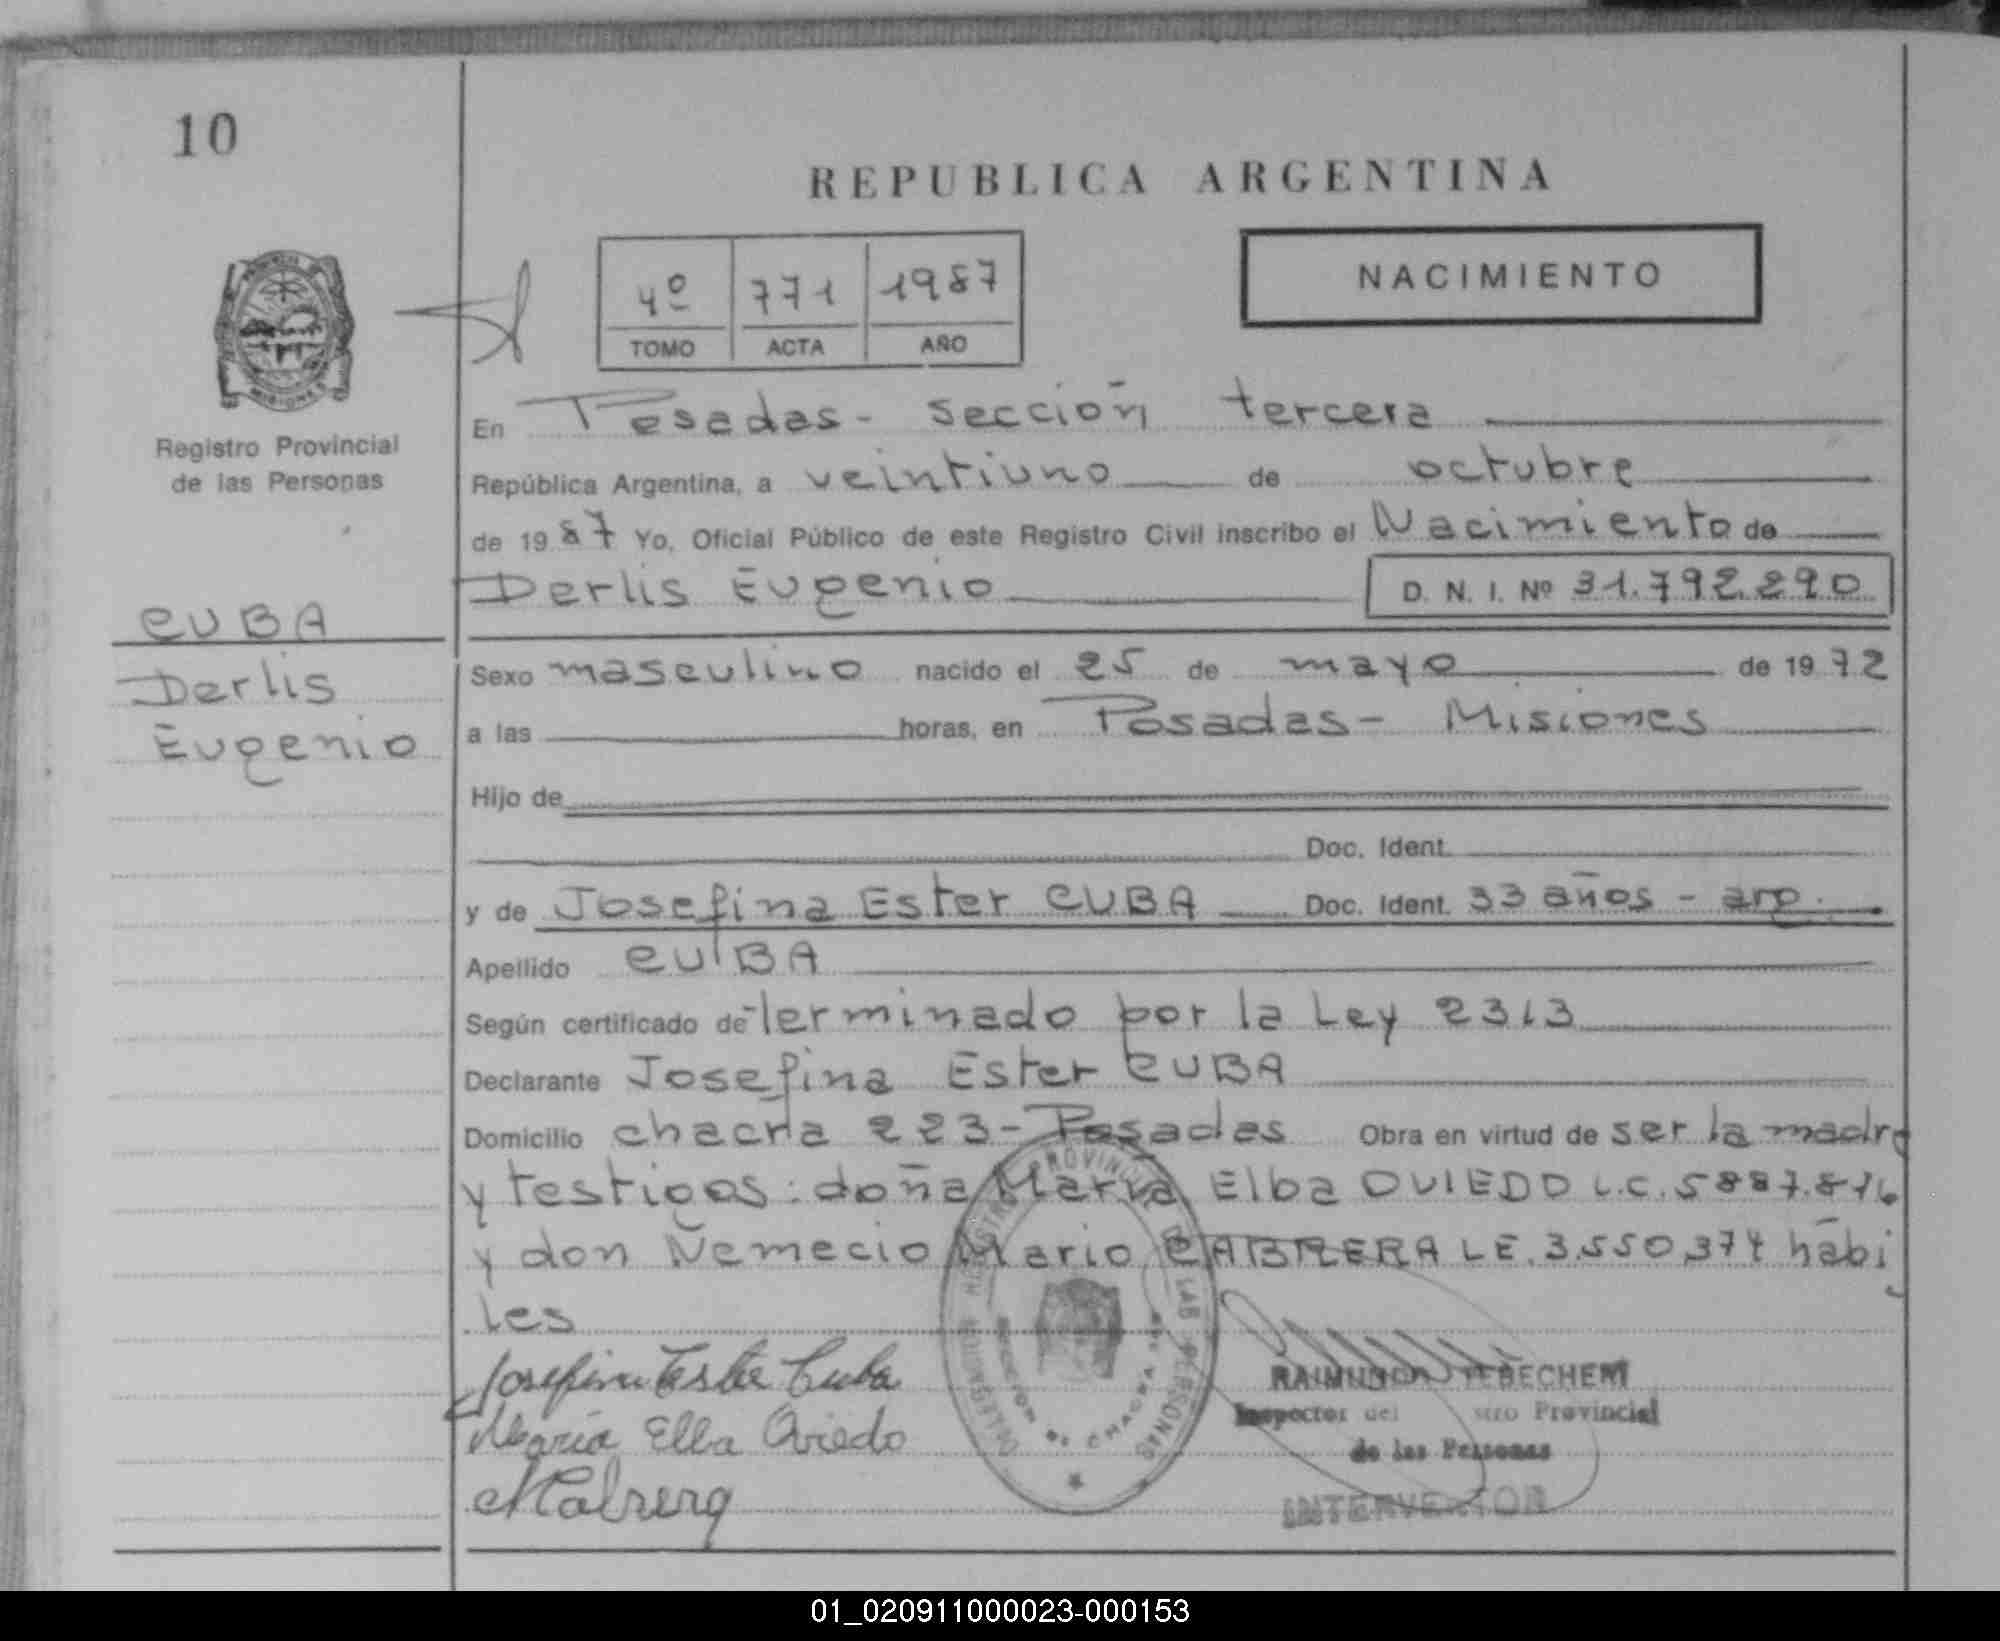 10
REPUBLICA ARGENTINA
4º 771 1987
TOMO ACTA AÑO
NACIMIENTO
Registro Provincial
de las Personas
CUBA
Derlis
Eugenio
En Posadas - sección tercera
República Argentina, a veintiuno de octubre
de 1987 Yo, Oficial Público de este Registro Civil inscribo el Nacimiento de
Derlis Eugenio D. N. I. Nº 31.792.290
Sexo masculino nacido el 25 de mayo de 1972
a las horas, en Posadas - Misiones
Hijo de
Doc. Ident.
y de Josefina Ester CUBA Doc. Ident. 33 años - arg.
Apellido CUBA
Según certificado determinado por la Ley 2313
Declarante Josefina Ester CUBA
Domicilio chacra 223 - Posadas Obra en virtud de ser la madre
y testigos: doña María Elba OVIEDO L.C. 5887.816
y don Nemecio Mario CABRERA LE. 3.550.374 hábi
les
Josefina Ester Cuba
María Elba Oviedo
NCabrera
PROVINCIAL DE LAS PERSONAS
DELEGACION
CHACRA
Inspector del stro Provincial
de las Personas
INTERVENTOR
01_020911000023-000153